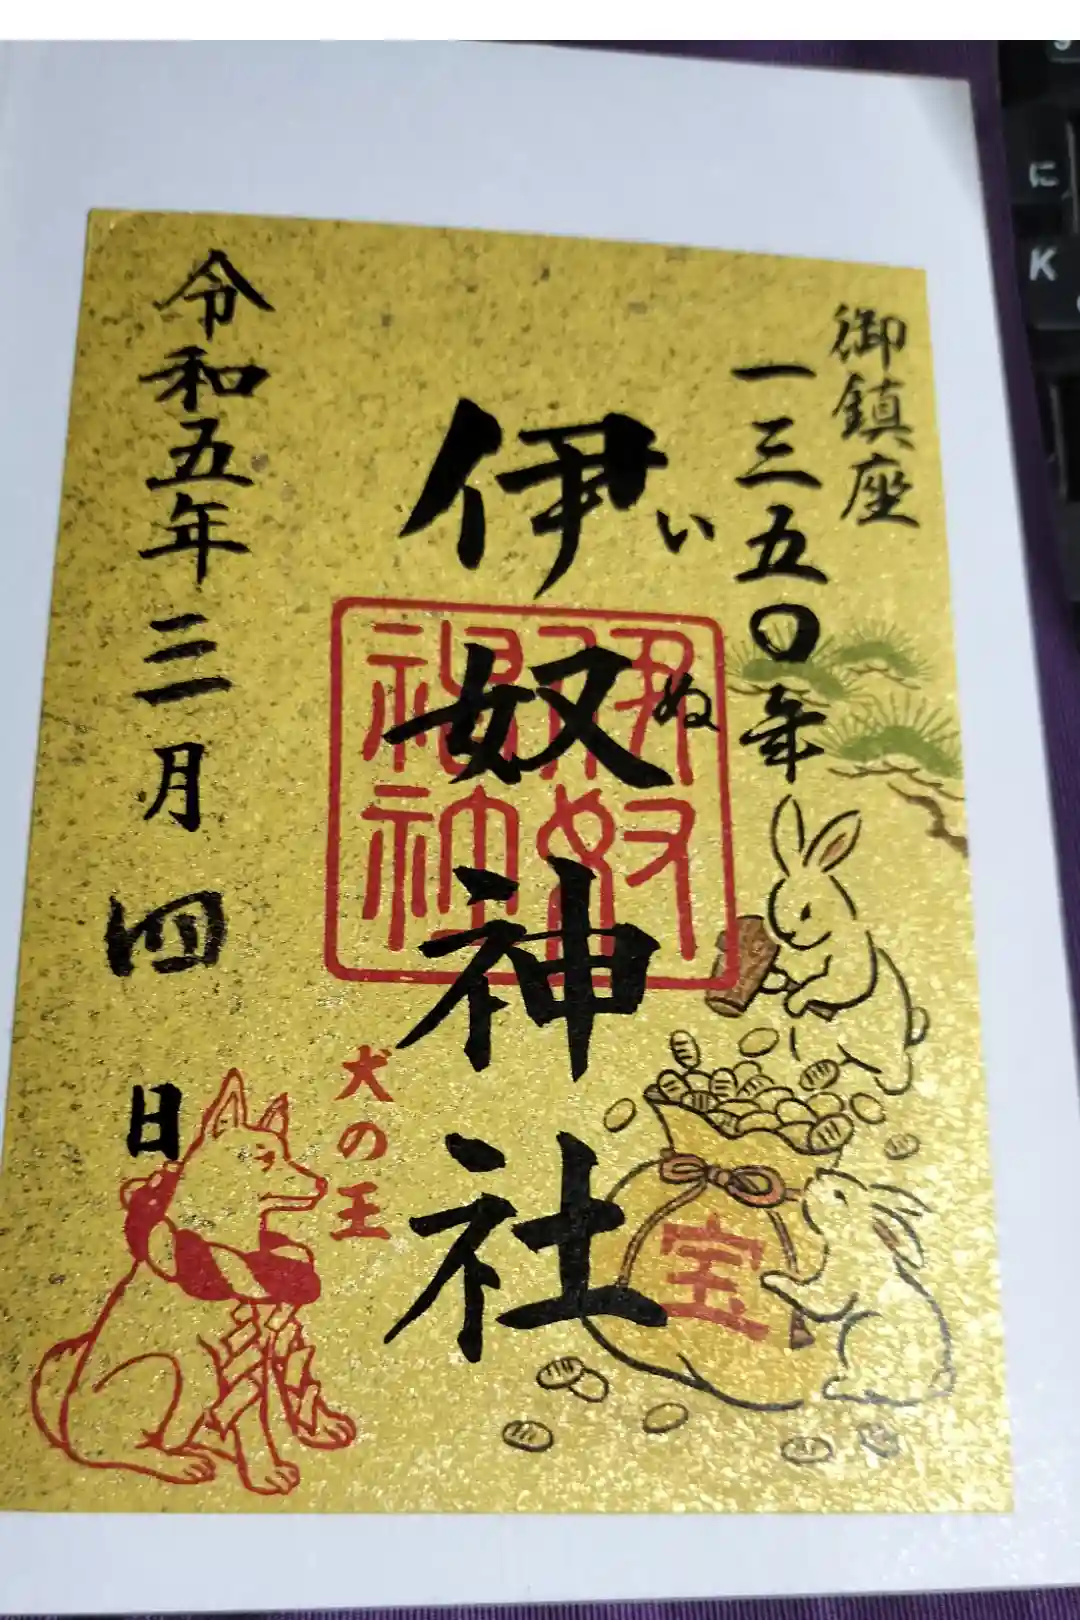 御鎮座
一三五〇年
いぬ
伊奴神社
伊奴
神社
宝
犬の王
令和五年三月四日
に
K